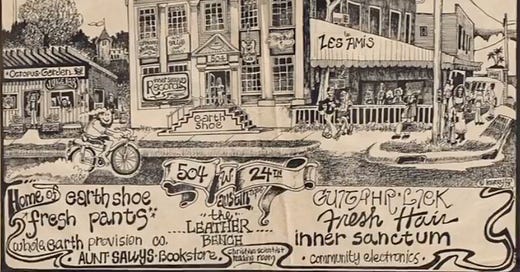 Octopus Garden
504
Records
earth
shoe
Les Amis
504 W 24th
Austin
Home of earth shoe
"fresh pants"
whole earth provision co.
AUNT SALLYS BOOKSTORE
"the
LEATHER
BENCH
christian scientist
reading room
GUITAHR LICK
Fresh Hair
inner sanctum
community electronics